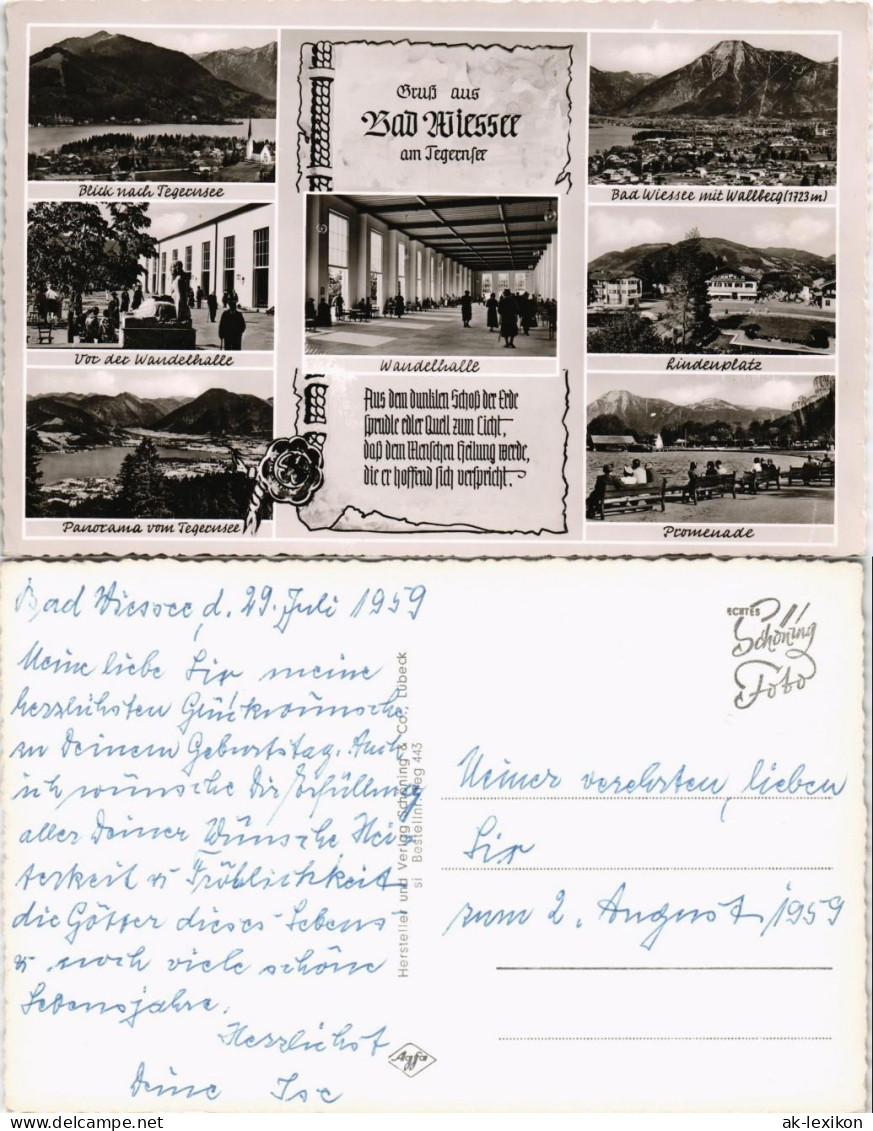 Gruß aus
Bad Wiessee
am Tegernsee
Blick nach Tegernsee
Bad Wiessee mit Wallberg (1723 m)
Vor der Wandelhalle
Wandelhalle
Lindenplatz
Aus dem dunklen Schoß der Erde
sprudle edler Quell zum Licht,
daß dem Menschen Heilung werde,
die er hoffend sich verspricht.
Panorama vom Tegernsee
Promenade
Bad Wiessee, d. 29. Juli 1959
Meine liebe meine
herzlichsten Glückwünsche
zu Deinem Geburtstag. Auch
ich wünsche Dir Erfüllung
aller Deiner Wünsche Hei-
terkeit u. Fröhlichkeit
die Götter dieses Lebens
u. noch viele schöne
Lebensjahre.
Herzlichst
Deine
Hersteller und Verlag Schöning & Co., Lübeck
si Bestellnr. Wieg 443
Agfa
ECHTES
Schöning
Foto
Meiner verehrten, lieben
zum 2. August 1959
ak-lexikon.com